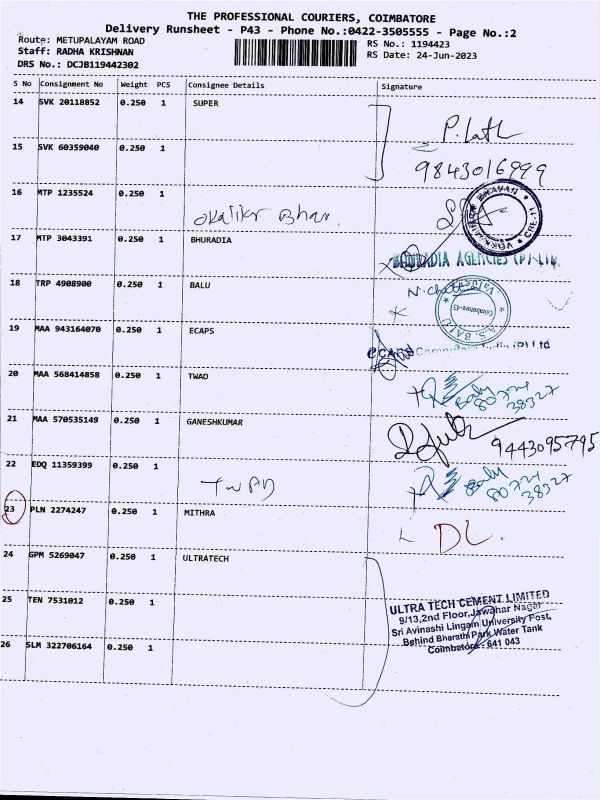 THE PROFESSIONAL COURIERS, COIMBATORE
Delivery Runsheet - P43 - Phone No.:0422-3505555 - Page No.:2
Route: METUPALAYAM ROAD
Staff: RADHA KRISHNAN
DRS No.: DCJB119442302
RS No.: 1194423
RS Date: 24-Jun-2023
S No Consignment No Weight PCS Consignee Details Signature
14 SVK 20118852 0.250 1 SUPER
P. Lath
15 SVK 60359040 0.250 1
9843016999
16 MTP 1235524 0.250 1
17 MTP 3043391 0.250 1 BHURADIA
BHURADIA AGENCIES (P) LTD
18 TRP 4908900 0.250 1 BALU
A.S. BALU
Coimbatore-43
19 MAA 943164070 0.250 1 ECAPS
(P) Ltd
20 MAA 568414858 0.250 1 TWAD
80724
38327
21 MAA 570535149 0.250 1 GANESHKUMAR
9443095795
22 EDQ 11359399 0.250 1 TWAD
80724
38327
23 PLN 2274247 0.250 1 MITHRA
DL.
24 GPM 5269047 0.250 1 ULTRATECH
25 TEN 7531012 0.250 1
ULTRA TECH CEMENT LIMITED
9/13,2nd Floor,Jawahar Nagar
Sri Avinashi Lingam University Post,
Behind Bharathi Park Water Tank
Coimbatore - 641 043
26 SLM 322706164 0.250 1